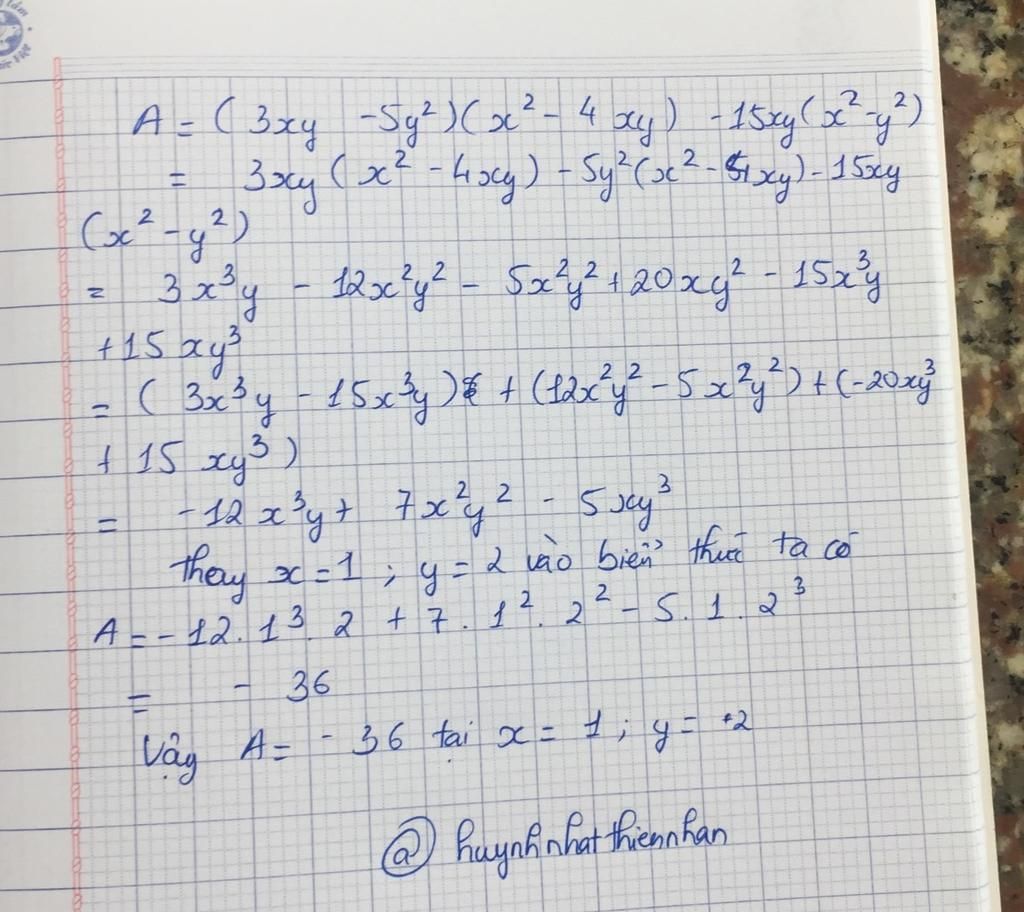 A = (3xy -5y²)(x² - 4xy) - 15xy(x² - y²)
= 3xy(x² - 4xy) - 5y²(x² - 4xy) - 15xy
(x² - y²)
= 3x³y - 12x²y² - 5x²y² + 20xy² - 15x³y
+ 15xy³
= (3x³y - 15x³y) + (12x²y² - 5x²y²) + (-20xy³
+ 15xy³)
= -12x³y + 7x²y² - 5xy³
thay x = 1 ; y = 2 vào biển thức ta có
A = -12 . 1³ . 2 + 7 . 1² . 2² - 5 . 1 . 2³
= - 36
Vậy A = - 36 tại x = 1 ; y = 2
@ huynhnhatthiennhan